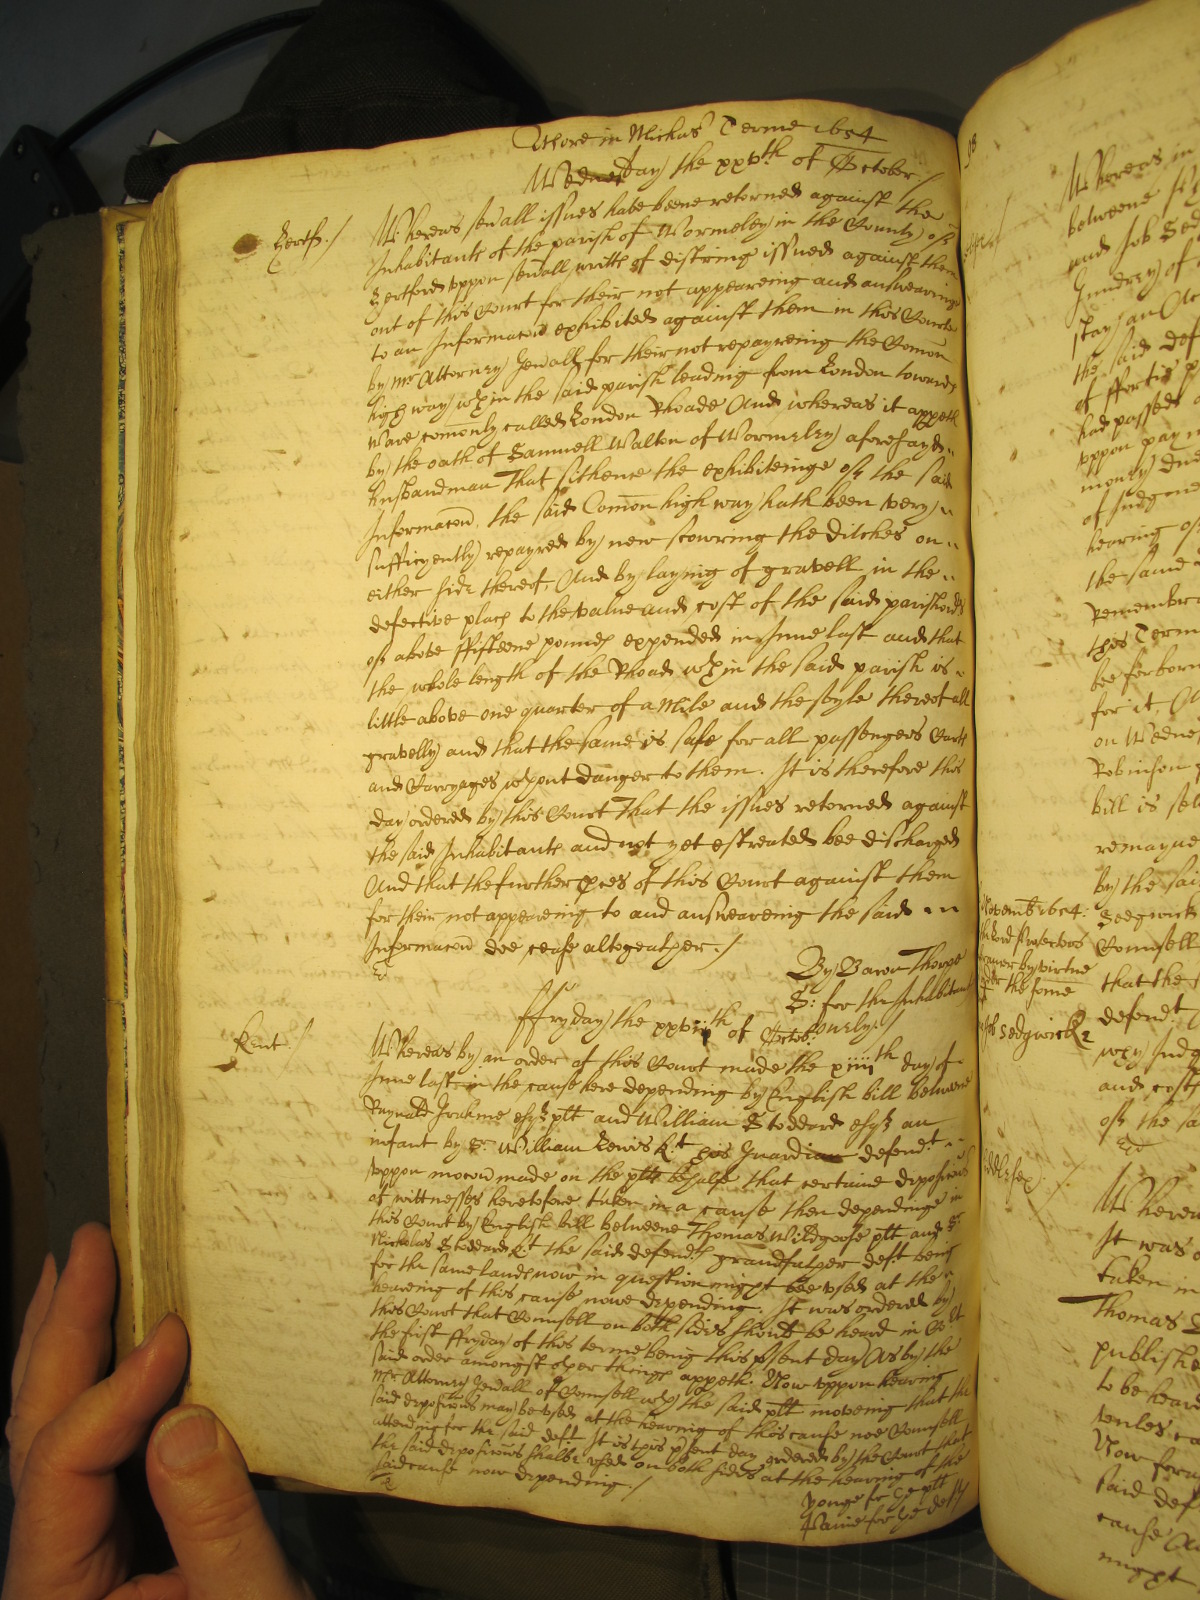 More in Michas Terme 1654
Wednesday the xxvth of October /
Hertf. /
Whereas sevall issues have beene retorned against the
Inhabitants of the parish of Wormeley in the County of
Hertford uppon sevall writts of distring issued against them
out of this Court for their not appeareing and answearinge
to an Informacon exhibited against them in this Courte
by mr Attorney Genall for their not repayreing the Comon
high way wthin the said parish leading from London towards
Ware comonly called London Rhoade And whereas it appeth
by the oath of Samuell Walton of Wormeley aforesayd
husbandman That sithence the exhibiteinge of the said
Informacon, the said Comon high way hath been very
sufficyently repayred by new scowring the ditches on
either side thereof, And by laying of gravell in the
defective place to the value and cost of the said parishoners
of above ffifteene pounds expended in June last and that
the whole length of the Rhoad wthin the said parish is
little above one quarter of a Mile and the soyle thereof all
gravelly and that the same is safe for all passengers Carts
and Carryages wthout danger to them. It is therefore this
day ordered by this Court That the issues retorned against
the said Inhabitants and not yet estreated bee discharged
And that the further pces of this Court against them
for their not appeareing to and answeareing the said
Informacon doe cease altogeather. /
By Baron Thorpe
S: for the Inhabitants
ffryday the xxviith of Octob: onely /
Kent /
Whereas by an order of this Court made the xiiiith day of
June last in the cause here depending by English bill betweene
Reynald Grahme esqr plt and William Stoddard esqr an
infant by Sr William Lewis kt his Guardian defendt
uppon mocon made on the plts behalfe that certaine deposicons
of wittnesses heretofore taken in a cause then dependinge in
this Court by English bill betweene Thomas Wildgoose plt and Sr
Nicholas Stoddard kt the said defendts grandfather deft being
for the same lands now in question might bee used at the
heareing of this cause nowe depending. It was ordered by
this Court that Counsell on both sides should be heard in Co
the first ffryday of this terme being this psent day As by the
said order amongst other things appeth. Now uppon heareing
mr Attorney Genall of Counsell wth the said plt moveing that the
said deposicons may be used at the heareing of this cause noe Counsell
attending for the said deft It is this psent day ordered by the Court that
the said deposicons shalbe used on both sides at the heareing of the
said cause now depending. /
Yonge for the plt
Same for the deft
98
Whereas in
betweene
and Job Sed
of
stay an
the said def
of
had passed
uppon pay
money due
of Judgem
heareing of
the same
Remembr
this Terme
bee forborn
for it
on Wednes
Robinson
bill is
remayne
by the said
Sedgwick
Counsell
that the
defendt
Novemb 1654:
the Lord Protectors
by virtue
the same
Job Sedgwicke
wth Judg
and costs
of the said
Middlesex
Wherea
It was o
taken in
Thomas
publishe
to be heard
Now
said def
cause
might